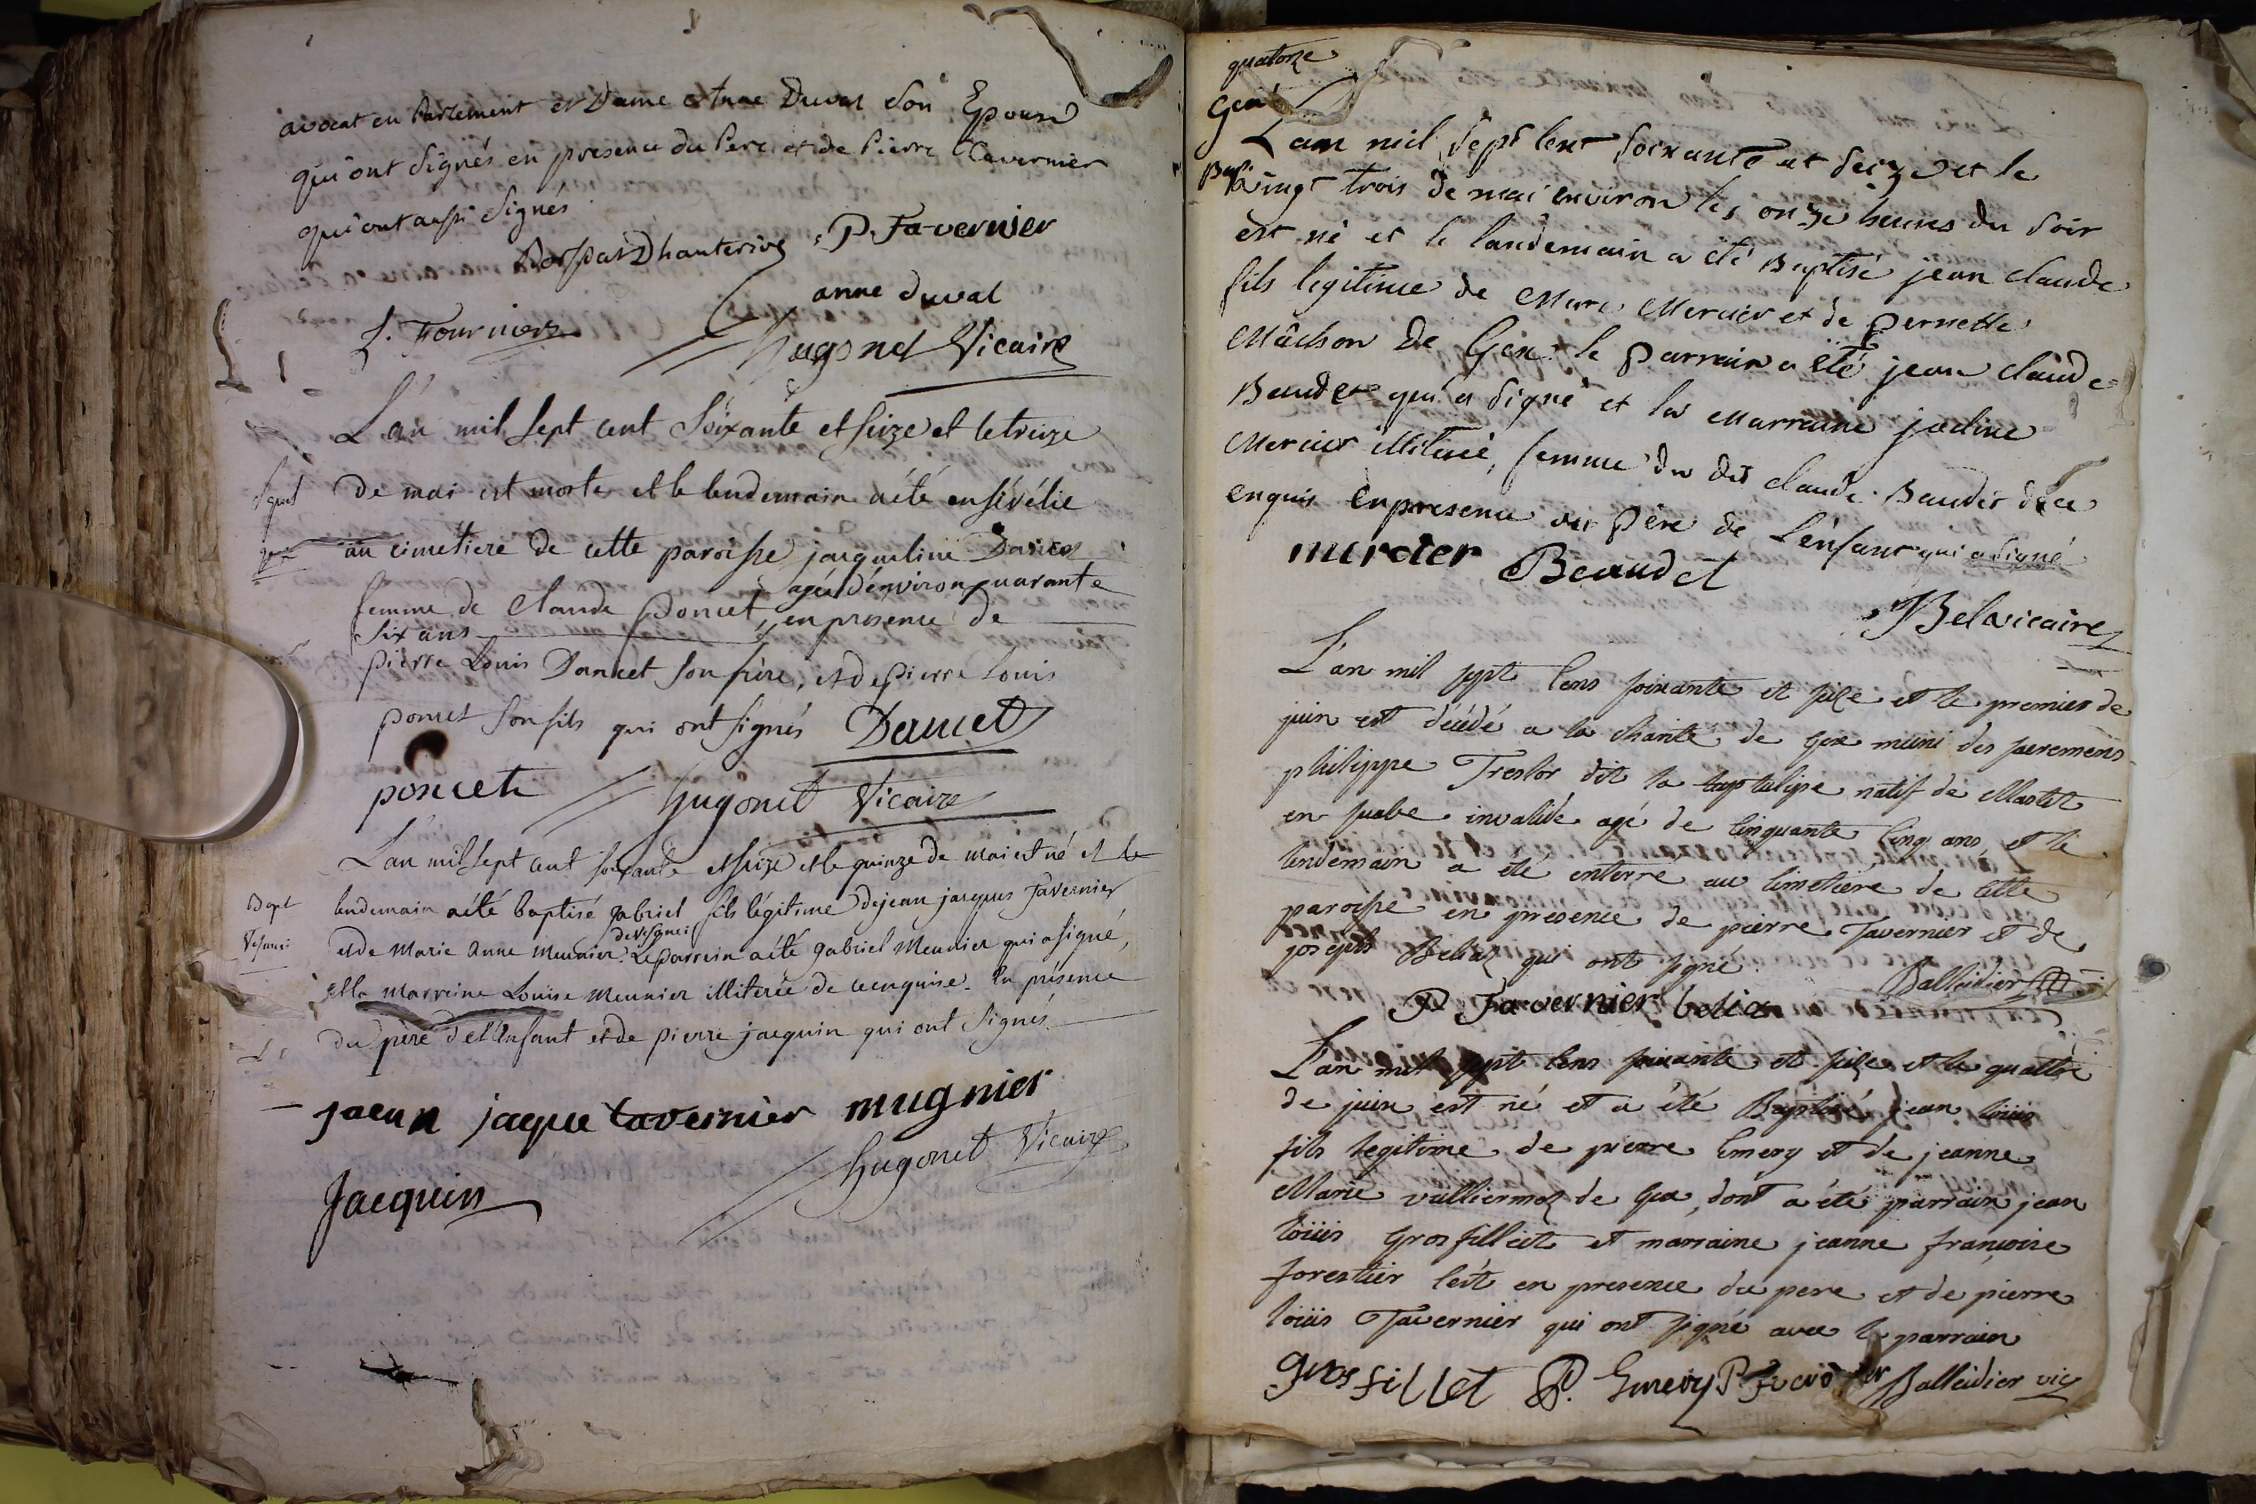 avocat en Parlement et Dame Anne Duval son Epouse
qui ont signés en presence du Pere et de Pierre Tavernier
qui ont aussi signés
P. Tavernier
anne duval
J. Fournier
hugonet Vicaire
L'an mil sept cent soixante et seize et le treize
de mai est morte et le lendemain a été ensévélie
au cimetiere de cette paroisse jacqueline Dancet
agée d'environ quarante
femme de Claude poncet, en presence de
six ans
pierre Louis Dancet son frere, et de pierre Louis
poncet son fils qui ont signés Dancet
poncet
hugonet Vicaire
L'an mil sept cent soixante et seize et le quinze de mai est né et le
Bapt
lendemain a été baptisé gabriel fils légitime de jean jacques Tavernier
de Vesancis
et de Marie Anne Meunier. Le parrein a été gabriel Meunier qui a signé,
et la marreine Louise Meunier illiterée de ce enquise. En présence
du père de l'Enfant et de pierre jacquin qui ont signés.
jaeun jaque tavernier mugnier
hugonet Vicaire
Jacquin
quatorze
Gex
L'an mil sept cent soixante et seize et le
Bapt
vingt trois de mai environ les onze heures du soir
est né et le landemain a été Baptisé jean claude
fils legitime de Marc Mercier et de pernette
Mâchon de Gex. le parrain a été jean claude
Baudet qui a signé et la Marraine jodine
Mercier illiterée, femme du dit claude Baudet de ce
enquis en presence du Père de l'enfant qui a signé
mercier Beaudet
Bela vicaire
L'an mil sept cens soixante et seize et le premier de
juin est décédé a la charité de gex muni des sacremens
philippe Treslor dit la taptulipe natif de Mastet
en suabe invalide agé de cinquante cinq ans, et le
lendemain a été enterré au cimetière de cette
paroisse en presence de pierre Tavernier et de
joseph Beliaz qui ont signé.
Balleidier
P Tavernier beliaz
L'an mil sept cens soixante et seize et le quattre
de juin est né et a été Baptisé jean loüis
fils legitime de pierre Emery et de jeanne
Marie vulliermoz de Gex, dont a été parrain jean
loüis grosfillet et marraine jeanne françoise
forestier le st en presence du pere et de pierre
loüis Tavernier qui ont signé avec le parrain
grosfillet P. Emery P. Balleidier vic